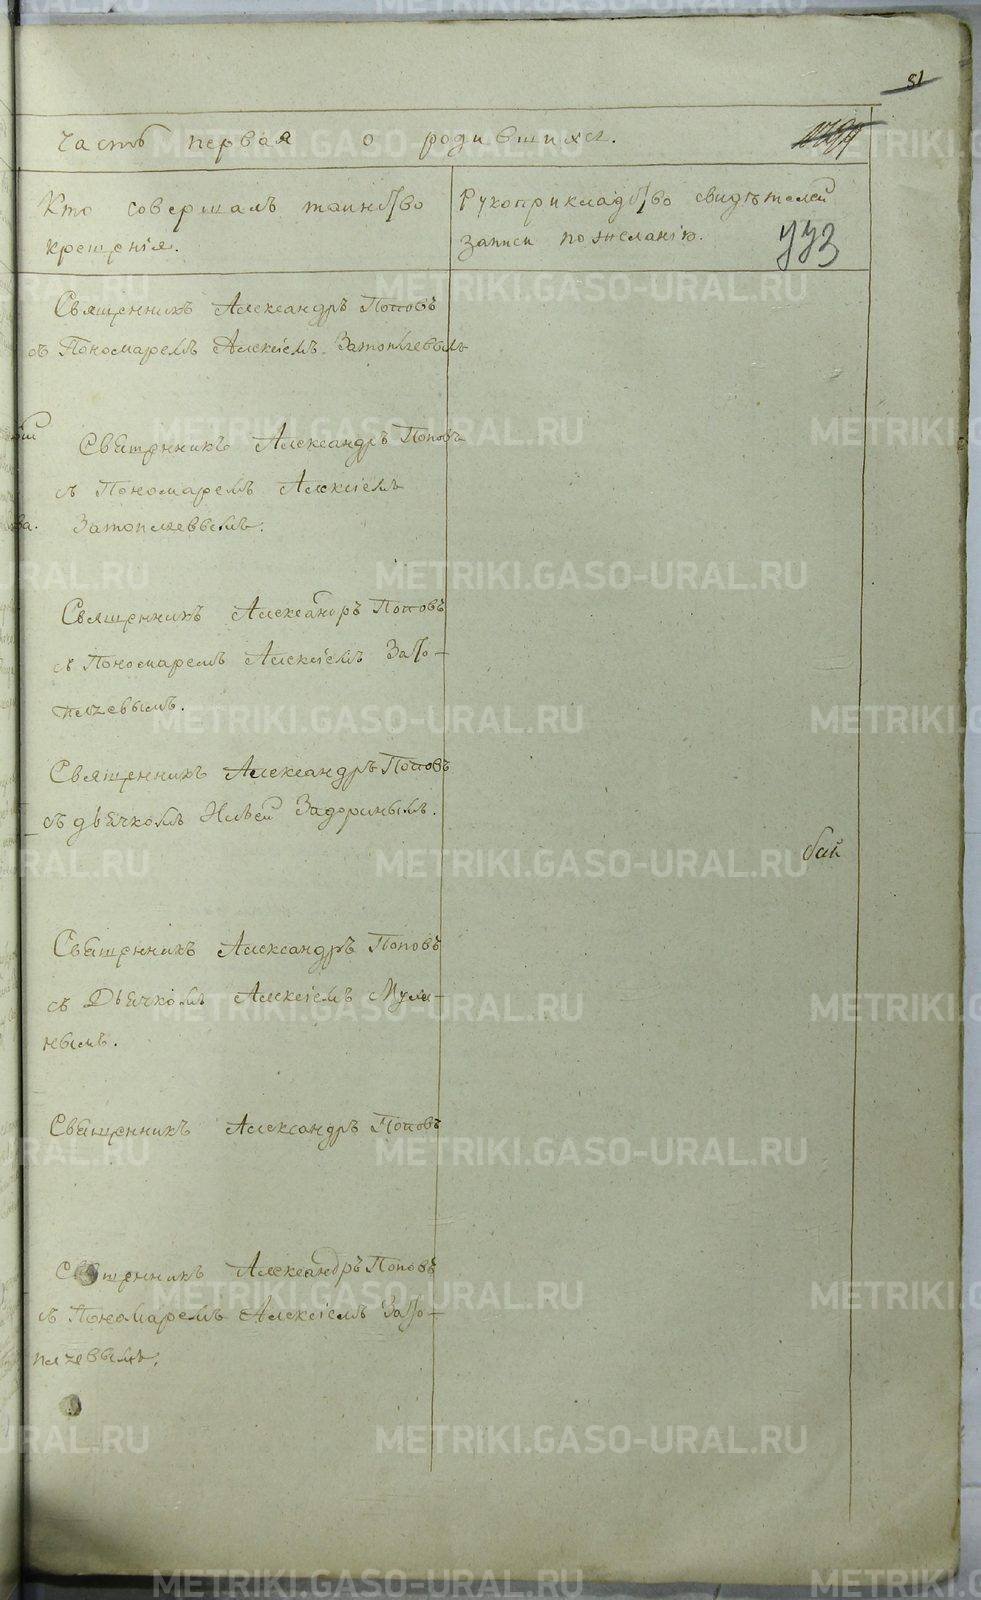 51
Часть первая о родившихся.
Кто совершалъ таинство
крещенія.
Рукоприкладство свидѣтелей
записи по желанію.
773
Священникъ Александръ Поповъ
съ Пономаремъ Алексіемъ Затопляевымъ
Священникъ Александръ Поповъ
съ Пономаремъ Алексіемъ
Затопляевымъ.
Священникъ Александръ Поповъ
съ Пономаремъ Алексіемъ Зато-
пляевымъ.
Священникъ Александръ Поповъ
съ дьячкомъ Задоринымъ.
Священникъ Александръ Поповъ
съ Дьячкомъ Алексіемъ Мули-
нымъ.
Священникъ Александръ Поповъ
Священникъ Александръ Поповъ
съ Пономаремъ Алексіемъ Зато-
пляевымъ.
METRIKI.GASO-URAL.RU